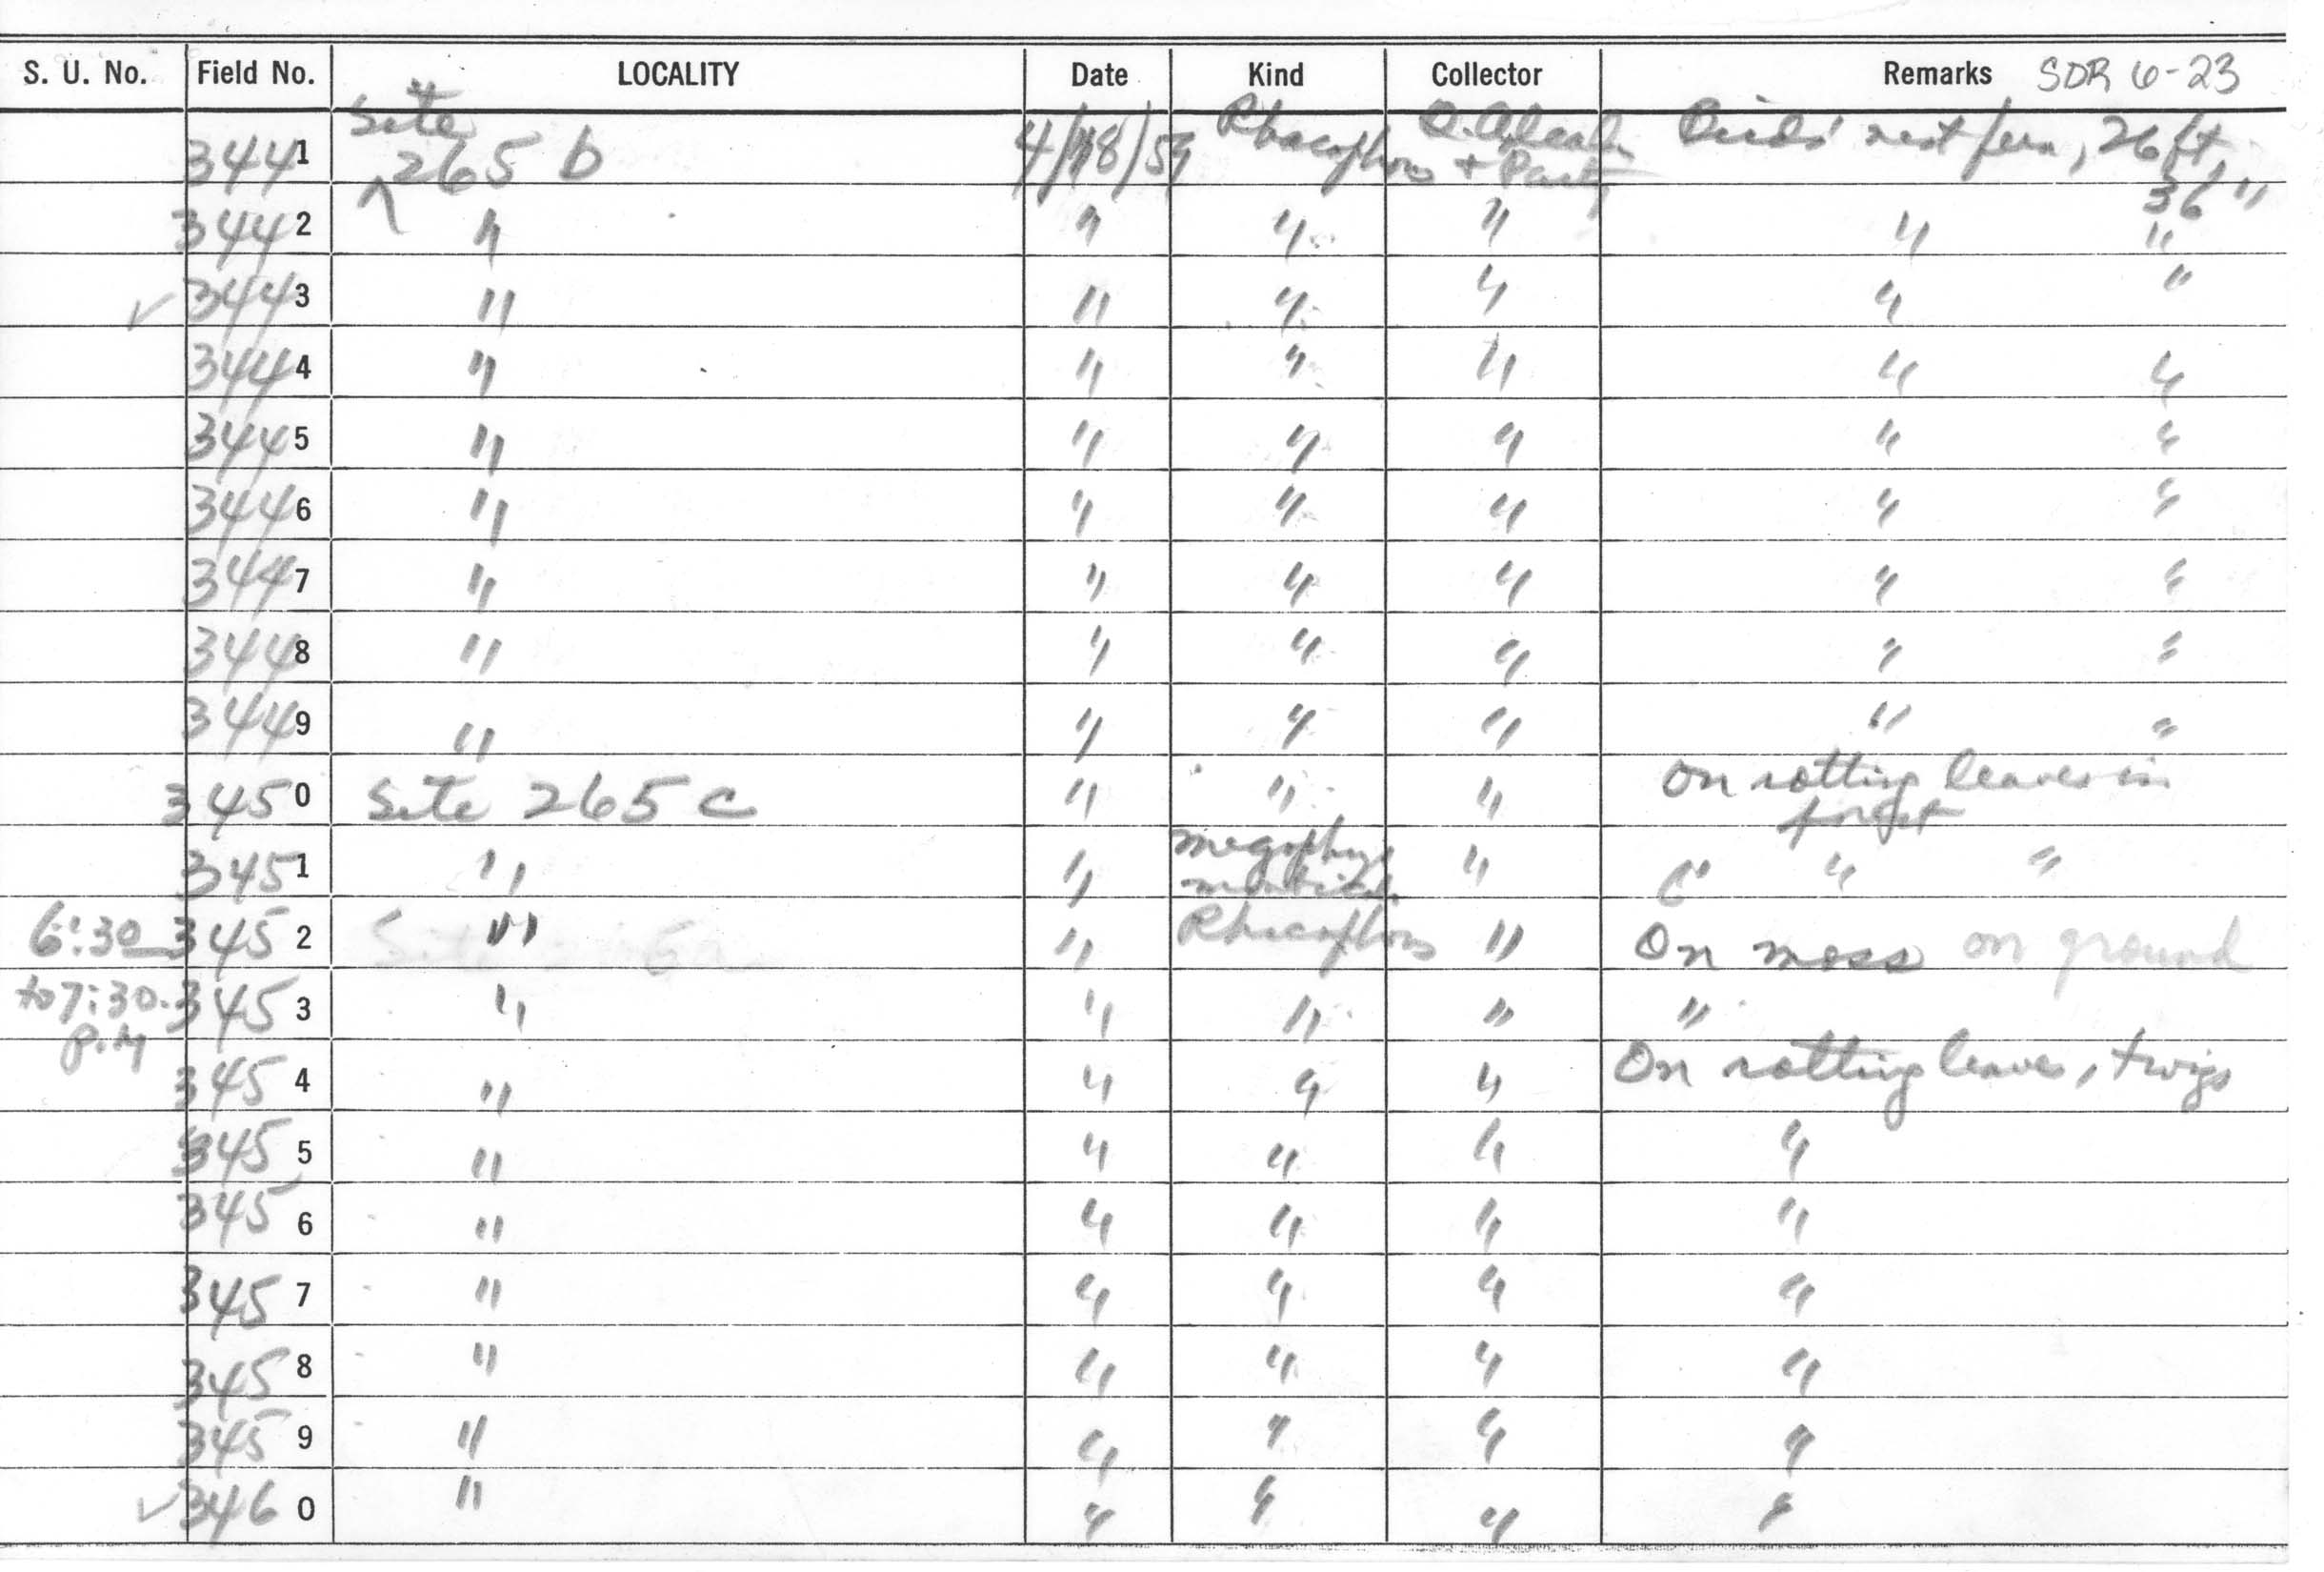 S. U. No. Field No. LOCALITY Date Kind Collector Remarks SDR 6-23
3441 Site 265 b 4/18/59 Rhacophorus Q. Alcala + Party Birds' nest fern, 26 ft.
3442 " " " " " 36 " "
✓ 3443 " " " " " "
3444 " " " " " "
3445 " " " " " "
3446 " " " " " "
3447 " " " " " "
3448 " " " " " "
3449 " " " " " "
3450 Site 265 c " " " On rotting leaves in forest
3451 " " Megophrys monticola " " " "
6:30 3452 " " Rhacophorus " On moss on ground
to 7:30 P.M 3453 " " " " "
3454 " " " " On rotting leaves, twigs
3455 " " " " "
3456 " " " " "
3457 " " " " "
3458 " " " " "
3459 " " " " "
✓ 3460 " " " " "